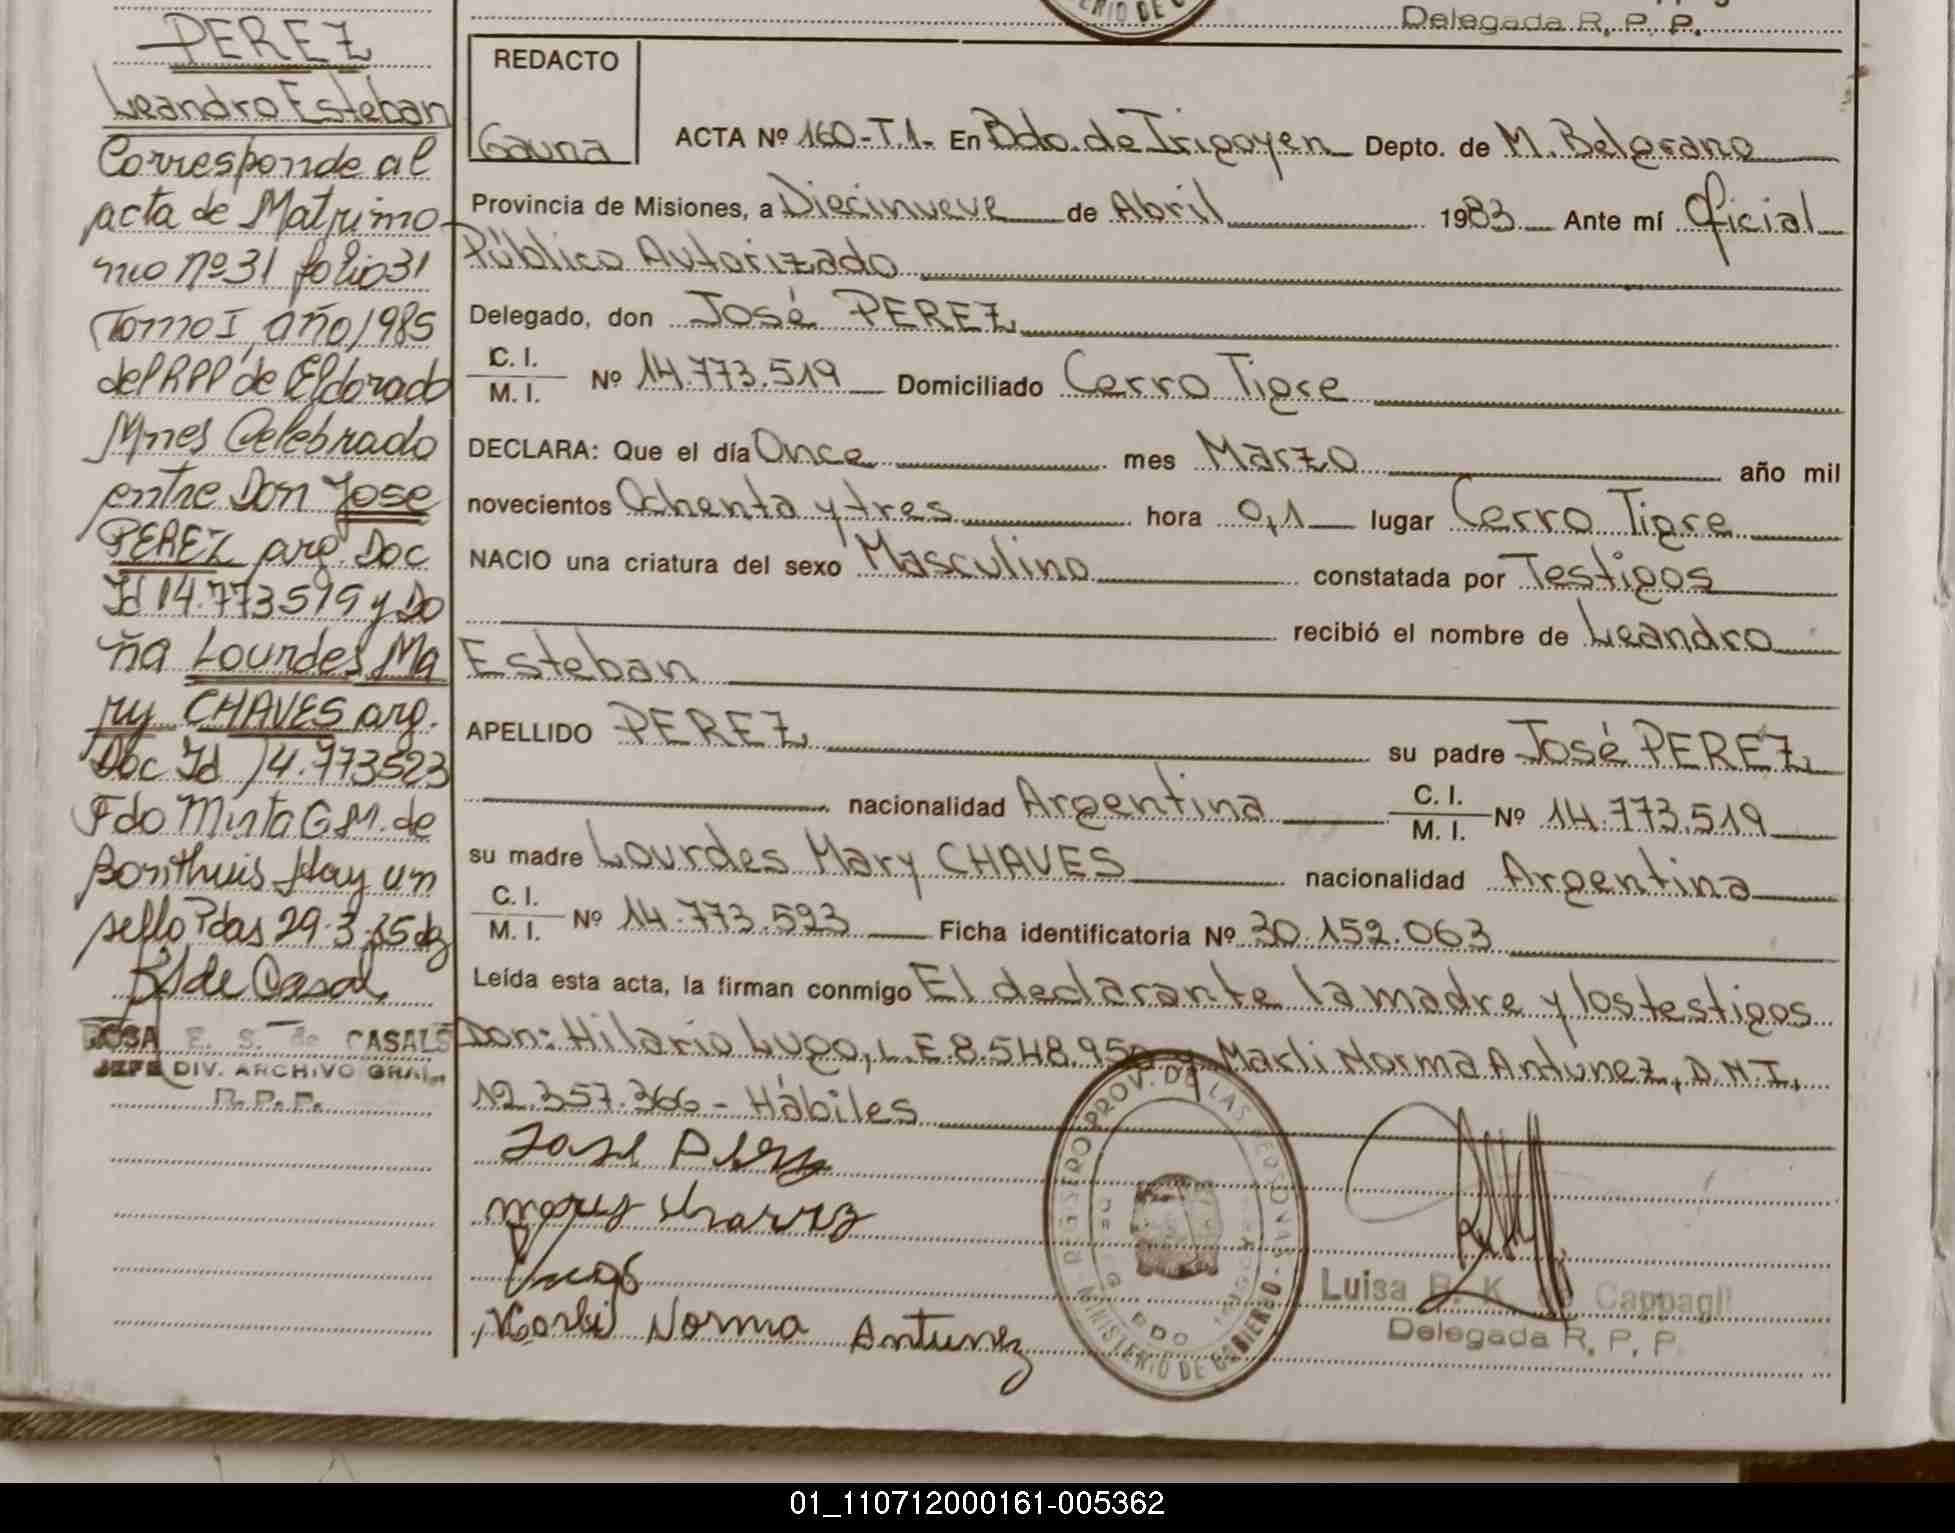 Delegada R. P. P.
PEREZ
Leandro Esteban
Corresponde al
acta de Matrimo-
nio nº 31 folio 31
Tomo I, año 1985
del RPP de Eldorado
Mnes Celebrado
entre Don Jose
PEREZ arg. Doc
Id 14.773519 y Do
ña Lourdes Ma
ry CHAVES arg.
Doc Id 14.773523
Fdo Mirta G M. de
Bonthuis Hay un
sello Pdas 29-3-85
de Casal
ROSA E. S. de CASALS
JEFE DIV. ARCHIVO GRAL.
R.P.P.
REDACTO
Gauna
ACTA Nº 160-T.1- En Bdo. de Irigoyen Depto. de M. Belgrano
Provincia de Misiones, a Diecinueve de Abril 1983 Ante mí Oficial
Público Autorizado
Delegado, don José PEREZ
C. I.
M. I. Nº 14.773.519 Domiciliado Cerro Tigre
DECLARA: Que el día Once mes Marzo año mil
novecientos Ochenta y tres hora 0,1 lugar Cerro Tigre
NACIO una criatura del sexo Masculino constatada por Testigos
recibió el nombre de Leandro
Esteban
APELLIDO PEREZ su padre José PEREZ
nacionalidad Argentina C. I.
M. I. Nº 14.773.519
su madre Lourdes Mary CHAVES nacionalidad Argentina
C. I.
M. I. Nº 14.773.523 Ficha identificatoria Nº 30.152.063
Leída esta acta, la firman conmigo El declarante la madre y los testigos
Don: Hilario Lugo, L.E. 8.548.950 y Marli Norma Antunez, D.N.I.
12.357.366 - Hábiles
Jose Perez
Mary Chavez
Lugo
Marli Norma Antunez
REGISTRO PROV. DE LAS PERSONAS - MINISTERIO DE GOBIERNO
BDO
Luisa K. de Cappagli
Delegada R. P. P.
01_110712000161-005362